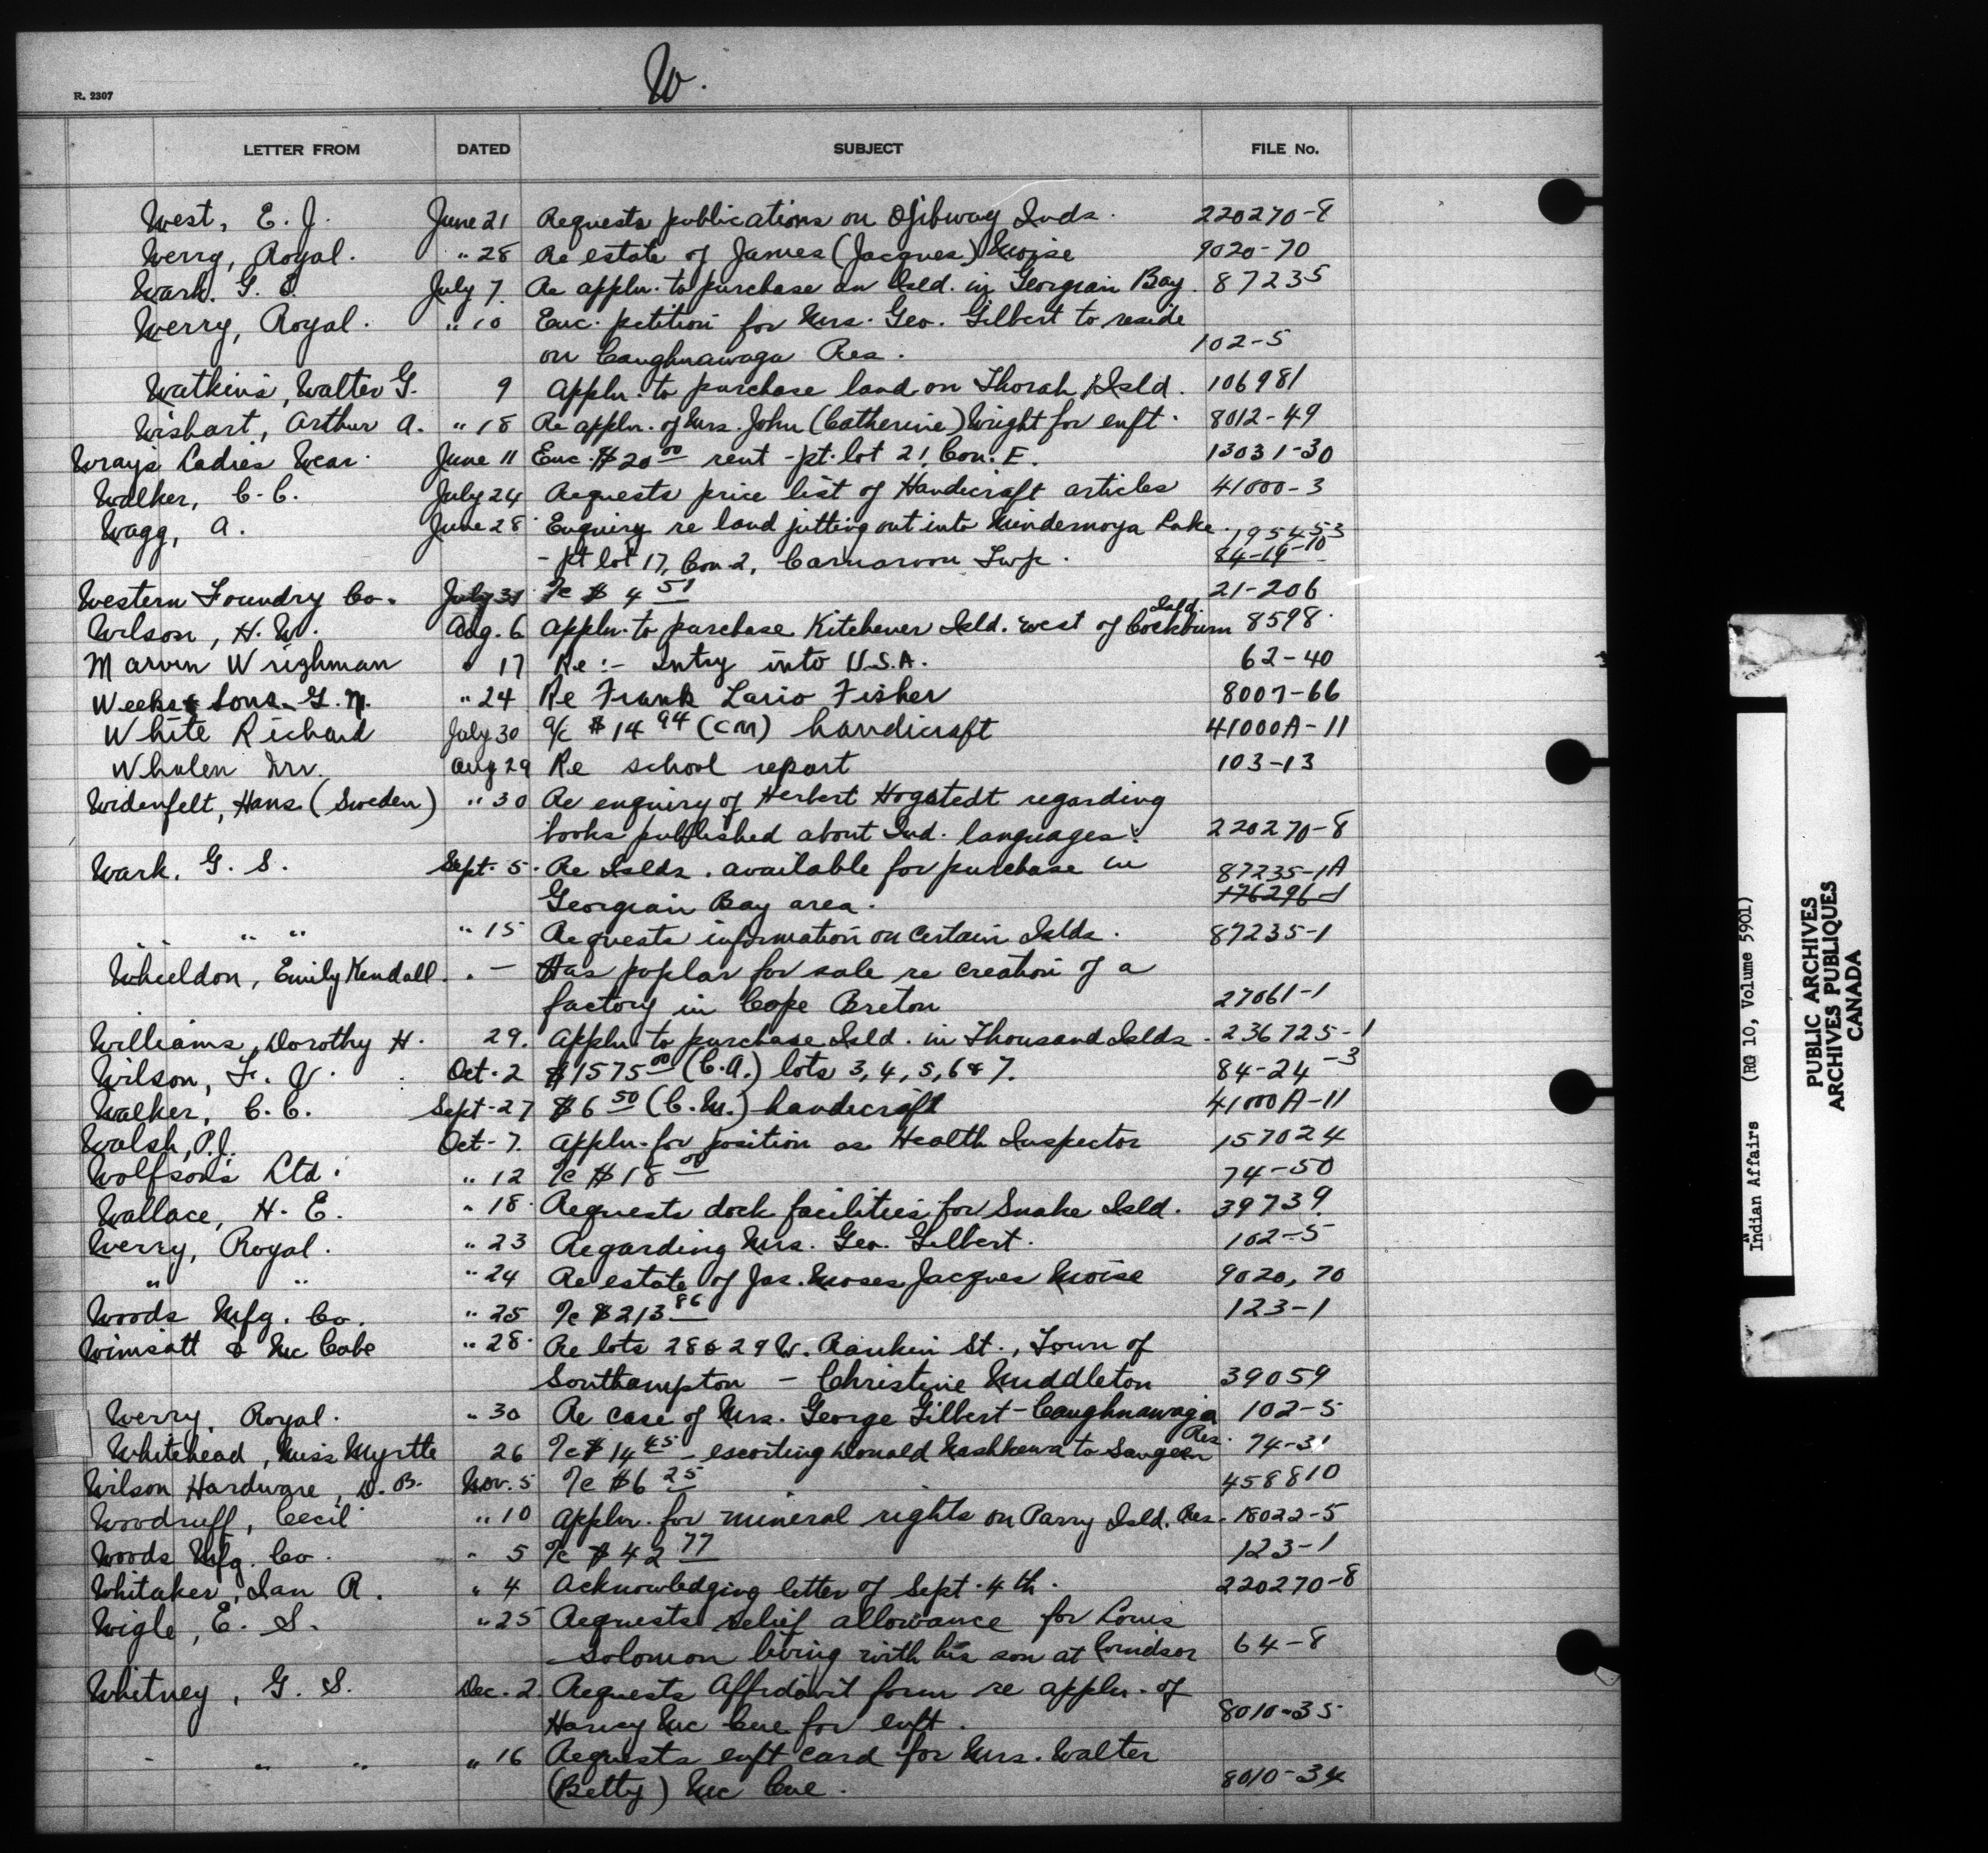 W.
R. 2307
LETTER FROM DATED SUBJECT FILE No.
West, E. J. June 21 Requests publications on Ojibway Inds. 220270-8
Werry, Royal. " 28 Re estate of James (Jacques) Moise 9020-70
Wark. G. S. July 7. Re appln. to purchase an Isld. in Georgian Bay. 87235
Werry, Royal. " 10 Enc. petition for Mrs. Geo. Gilbert to reside
on Caughnawaga Res. 102-5
Watkins, Walter G. 9 Appln. to purchase land on Thorah Isld. 106981
Wishart, Arthur A. " 18 Re appln. of Mrs. John (Catherine) Wright for enft. 8012-49
Wray's Ladies Wear. June 11 Enc. $20 00 rent - pt. lot 21, Con. E. 13031-30
Walker, C. C. July 24 Requests price list of Handicraft articles 41000-3
Wagg, A. June 28 Enquiry re land jutting out into Mindemoya Lake. 195453
- pt lot 17, Con 2, Carnarvon Twp. 84-19-10
Western Foundry Co. July 31 %c $ 4 51 21-206
Wilson, H. W. Aug. 6 Appln. to purchase Kitchener Isld. west of Cockburn Isld. 8598.
Marvin Wrighman " 17 Re :- Entry into U.S.A. 62-40
Weeks & Sons. G. N. " 24 Re Frank Lario Fisher 8007-66
White Richard July 30 a/c $14 94 (CM) handicraft 41000A-11
Whalen Irv. Aug 29 Re school report 103-13
Widenfelt, Hans (Sweden) " 30 Re enquiry of Herbert Hogstedt regarding
books published about Ind. languages. 220270-8
Wark, G. S. Sept. 5. Re Islds. available for purchase in 87235-1A
Georgian Bay area. 176296-1
" " " " 15 Requests information on certain Islds. 87235-1
Wheeldon, Emily Kendall. . - Has poplar for sale re creation of a
factory in Cape Breton 27061-1
Williams, Dorothy H. 29. Appln. to purchase Isld. in Thousand Islds. 236725-1
Wilson, F. V. Oct. 2 $1575 00 (C.A.) lots 3, 4, 5, 6 & 7. 84-24-3
Walker, C. C. Sept. 27 $6 50 (C.M.) handicraft 41000A-11
Walsh, P. J. Oct. 7. Appln. for position as Health Inspector 157024
Wolfson's Ltd. " 12 %c $18 00 74-50
Wallace, H. E. " 18. Requests dock facilities for Snake Isld. 39739.
Werry, Royal. " 23 Regarding Mrs. Geo. Gilbert. 102-5
" " " 24 Re estate of Jas. Moses Jacques Moise 9020, 70
Woods Mfg. Co. " 25 %c $213 86 123-1
Wimsatt & Mc Cabe " 28. Re lots 28 & 29 W. Rankin St., Town of
Southampton - Christine Middleton 39059
Werry, Royal. " 30 Re case of Mrs. George Gilbert - Caughnawaga Res. 102-5
Whitehead, Miss Myrtle 26 %c $14 45 - escorting Donald Nashkewa to Saugeen 74-31
Wilson Hardware, D. B. Nov. 5 %c $6 25 458810
Woodruff, Cecil " 10 Appln. for mineral rights on Parry Isld. Res. 18022-5
Woods Mfg. Co. " 5 %c $ 42 77 123-1
Whitaker, Ian R. " 4 Acknowledging letter of Sept. 4th. 220270-8
Wigle, E. S. " 25 Requests relief allowance for Louis
Solomon living with his son at Windsor 64-8
Whitney, G. S. Dec. 2. Requests Affidavit form re appln. of
Harvey Mc Cue for enft. 8010-35
" " " " 16 Requests enft card for Mrs. Walter
(Betty) Mc Cue. 8010-34
Indian Affairs (RG 10, Volume 5901)
PUBLIC ARCHIVES
ARCHIVES PUBLIQUES
CANADA